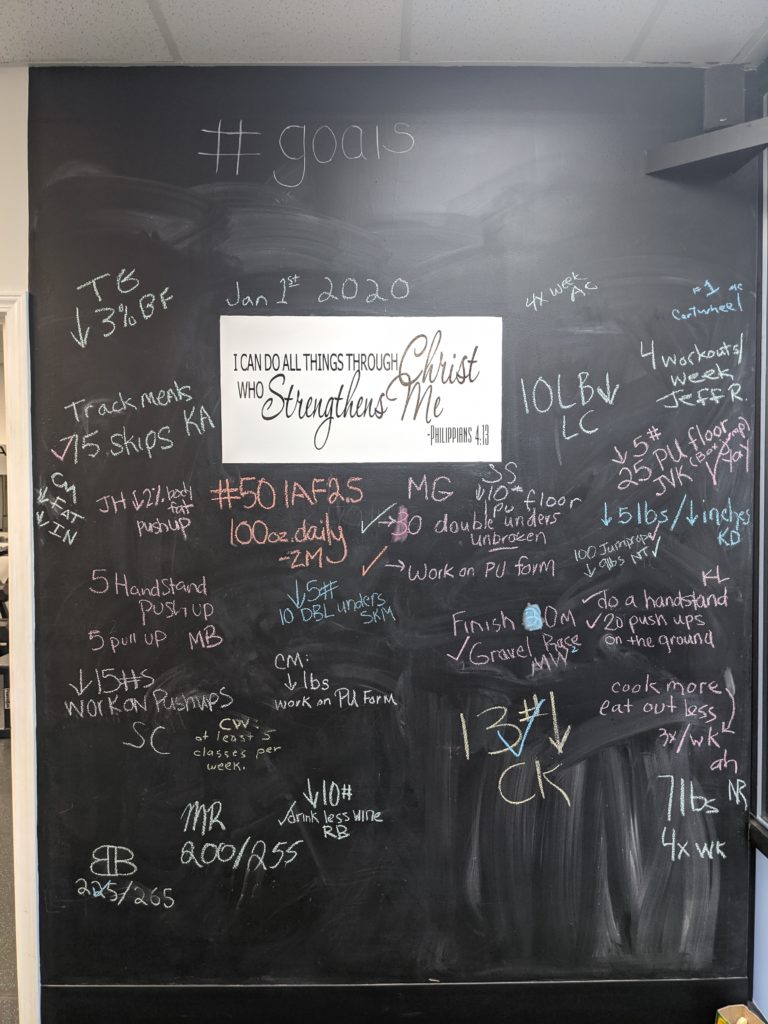 #goals
Jan 1st 2020
I CAN DO ALL THINGS THROUGH Christ
WHO Strengthens Me
-PHILIPPIANS 4:13
TG
↓ 3% BF
Track meets
✓ 75 skips KA
CM
↓ FAT
↓ IN
JH ↓2% body
fat
pushup
#50 IAF25
100oz. daily
-ZM
5 Handstand
push up
5 pull up MB
↓5#
10 DBL unders
SKM
↓15#s
work on Pushups
SC
CM:
↓ lbs
work on PU form
CW:
at least 5
classes per
week.
↓10#
✓drink less wine
RB
MR
200/255
BB
225/265
4x week
AC
#1
Cartwheel
10LB↓
LC
4 workouts/
week
Jeff R.
↓5#
25 PU floor
JVK
✓ Yay
SS
↓10#
PU floor
MG
✓→30 double unders
unbroken
✓→work on PU form
↓5lbs/↓inches
KD
100 Jumprope✓
↓ 9lbs NT✓
KL
✓do a handstand
✓20 push ups
on the ground
Finish 30M
✓Gravel Race
MW
13#↓
✓
CK
cook more
eat out less
3x/wk
ah
7lbs NR
4x wk